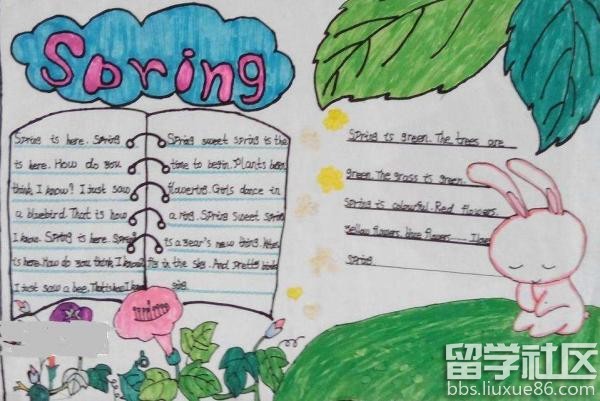 Spring
Spring is here. Spring
is here. How do you
think, I know? I just saw
a bluebird. That is how
I know. Spring is here. Spring
is here. How do you think, I know?
I just saw a bee. That is how I know
Spring sweet spring is the
time to begin. Plants begin
flowering. Girls dance in
a ring. Spring sweet spring
is a year's new thing.
fly in the sky. And pretty birds
sing.
Spring is green. The trees are
green. The grass is green.
Spring is colourful. Red flowers.
Yellow flowers, blue flowers...... I love
spring.
留学社区
bbs.liuxue86.com